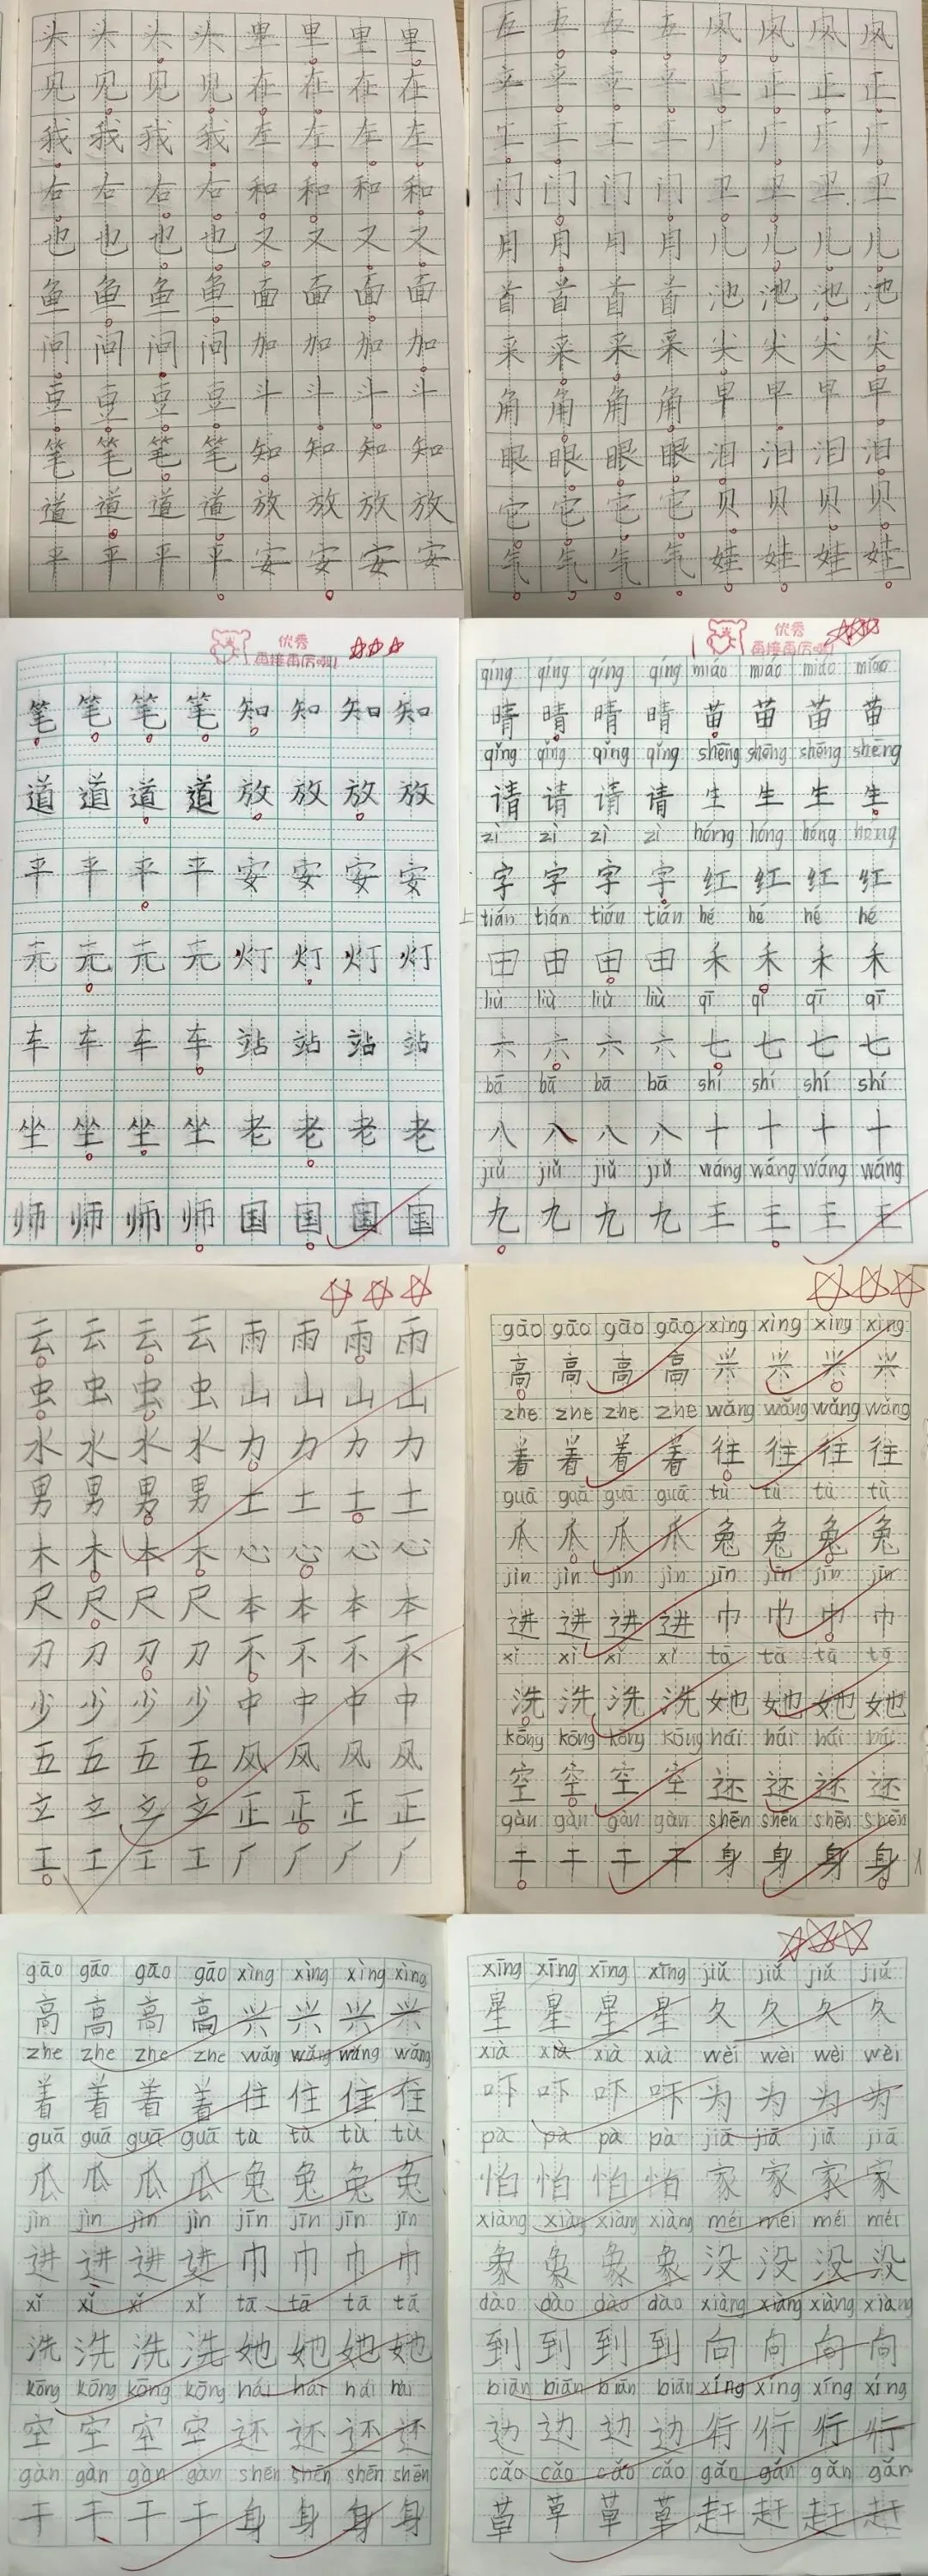 头 头 头 头 里 里 里 里
见 见 见 见 在 在 在 在
我 我 我 我 左 左 左 左
右 右 右 右 和 和 和 和
也 也 也 也 又 又 又 又
鱼 鱼 鱼 鱼 面 面 面 面
问 问 问 问 加 加 加 加
豆 豆 豆 豆 斗 斗 斗 斗
笔 笔 笔 笔 知 知 知 知
道 道 道 道 放 放 放 放
平 平 平 平 安 安 安 安
五 五 五 五 风 风 风 风
立 立 立 立 正 正 正 正
工 工 工 工 厂 厂 厂 厂
门 门 门 门 卫 卫 卫 卫
月 月 月 月 儿 儿 儿 儿
首 首 首 首 池 池 池 池
采 采 采 采 尖 尖 尖 尖
角 角 角 角 早 早 早 早
眼 眼 眼 眼 泪 泪 泪 泪
它 它 它 它 贝 贝 贝 贝
气 气 气 气 娃 娃 娃 娃
优秀
再接再厉啊!
笔 笔 笔 笔 知 知 知 知
道 道 道 道 放 放 放 放
平 平 平 平 安 安 安 安
元 元 元 元 灯 灯 灯 灯
车 车 车 车 站 站 站 站
坐 坐 坐 坐 老 老 老 老
师 师 师 师 国 国 国 国
优秀
再接再厉啊!
qíng qíng qíng qíng miáo miáo miáo miáo
晴 晴 晴 晴 苗 苗 苗 苗
qǐng qǐng qǐng qǐng shēng shēng shēng shēng
请 请 请 请 生 生 生 生
zì zì zì zì hóng hóng hóng hóng
字 字 字 字 红 红 红 红
tián tián tián tián hé hé hé hé
田 田 田 田 禾 禾 禾 禾
liù liù liù liù qī qī qī qī
六 六 六 六 七 七 七 七
bā bā bā bā shí shí shí shí
八 八 八 八 十 十 十 十
jiǔ jiǔ jiǔ jiǔ wáng wáng wáng wáng
九 九 九 九 王 王 王 王
云 云 云 云 雨 雨 雨 雨
虫 虫 虫 虫 山 山 山 山
水 水 水 水 力 力 力 力
男 男 男 男 土 土 土 土
木 木 木 木 心 心 心 心
尺 尺 尺 尺 本 本 本 本
刀 刀 刀 刀 不 不 不 不
少 少 少 少 中 中 中 中
五 五 五 五 风 风 风 风
立 立 立 立 正 正 正 正
工 工 工 工 厂 厂 厂 厂
gāo gāo gāo gāo xìng xìng xìng xìng
高 高 高 高 兴 兴 兴 兴
zhe zhe zhe zhe wǎng wǎng wǎng wǎng
着 着 着 着 往 往 往 往
guā guā guā guā tù tù tù tù
瓜 瓜 瓜 瓜 兔 兔 兔 兔
jìn jìn jìn jìn jīn jīn jīn jīn
进 进 进 进 巾 巾 巾 巾
xǐ xǐ xǐ xǐ tā tā tā tā
洗 洗 洗 洗 她 她 她 她
kōng kōng kōng kōng hái hái hái hái
空 空 空 空 还 还 还 还
gàn gàn gàn gàn shēn shēn shēn shēn
干 干 干 干 身 身 身 身
gāo gāo gāo gāo xìng xìng xìng xìng
高 高 高 高 兴 兴 兴 兴
zhe zhe zhe zhe wǎng wǎng wǎng wǎng
着 着 着 着 往 往 往 往
guā guā guā guā tù tù tù tù
瓜 瓜 瓜 瓜 兔 兔 兔 兔
jìn jìn jìn jìn jīn jīn jīn jīn
进 进 进 进 巾 巾 巾 巾
xǐ xǐ xǐ xǐ tā tā tā tā
洗 洗 洗 洗 她 她 她 她
kōng kōng kōng kōng hái hái hái hái
空 空 空 空 还 还 还 还
gàn gàn gàn gàn shēn shēn shēn shēn
干 干 干 干 身 身 身 身
xīng xīng xīng xīng jiǔ jiǔ jiǔ jiǔ
星 星 星 星 久 久 久 久
xià xià xià xià wèi wèi wèi wèi
吓 吓 吓 吓 为 为 为 为
pà pà pà pà jiā jiā jiā jiā
怕 怕 怕 怕 家 家 家 家
xiàng xiàng xiàng xiàng méi méi méi méi
象 象 象 象 没 没 没 没
dào dào dào dào xiàng xiàng xiàng xiàng
到 到 到 到 向 向 向 向
biān biān biān biān xíng xíng xíng xíng
边 边 边 边 行 行 行 行
cǎo cǎo cǎo cǎo gǎn gǎn gǎn gǎn
草 草 草 草 赶 赶 赶 赶